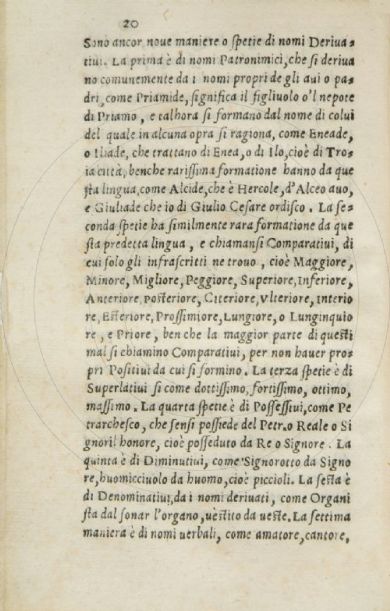 20
Sono ancor noue maniere o spetie di nomi Deriua-
tiui. La prima è di nomi Patronimici, che si deriua
no comunemente da i nomi propri de gli aui o pa-
dri, come Priamide, significa il figliuolo o'l nepote
di Priamo, e talhora si formano dal nome di colui
del quale in alcuna opra si ragiona, come Eneade,
o Iliade, che trattano di Enea, o di Ilo, cioè di Tro-
ia città, benche rarissima formatione hanno da que
sta lingua, come Alcide, che è Hercole, d'Alceo auo,
e Giuliade che io di Giulio Cesare ordisco. La se-
conda spetie ha similmente rara formatione da que
sta predetta lingua, e chiamansi Comparatiui, di
cui solo gli infrascritti ne trouo, cioè Maggiore,
Minore, Migliore, Peggiore, Superiore, Inferiore,
Anteriore, Posteriore, Citeriore, Vlteriore, Interio
re, Esteriore, Prossimiore, Lungiore, o Lunginquio
re, e Priore, ben che la maggior parte di questi
mal si chiamino Comparatiui, per non hauer pro-
pri Positiui da cui si formino. La terza spetie è di
Superlatiui si come dottissimo, fortissimo, ottimo,
massimo. La quarta spetie è di Possessiui, come Pe
trarchesco, che sensi possiede del Petr.o Reale o Si
gnoril honore, cioè posseduto da Re o Signore. La
quinta è di Diminutiui, come Signorotto da Signo
re, huomicciuolo da huomo, cioè piccioli. La sesta è
di Denominatiui, da i nomi deriuati, come Organi
sta dal sonar l'organo, uestito da ueste. La settima
maniera è di nomi uerbali, come amatore, cantore,